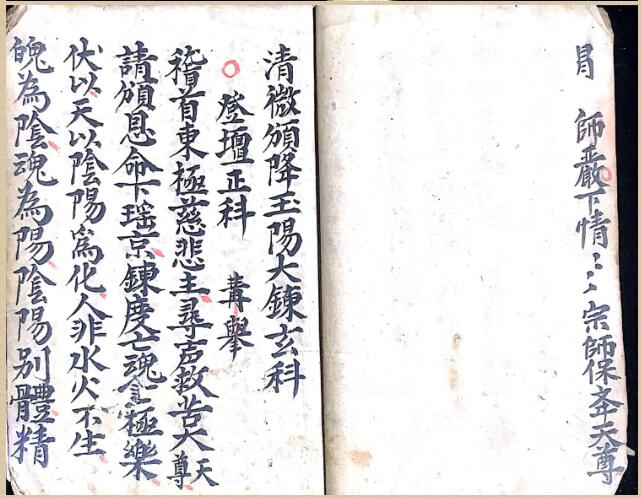 冐 師嚴下情〻〻宗師保奉天尊
清微頒降玉陽大鍊玄科
登壇正科 冓舉
稽首東極慈悲主尋声救苦大天尊
請頒恩命下瑶京鍊度亡魂登極樂
伏以天以陰陽為化人非水火不生
魄為陰魂為陽陰陽別體精